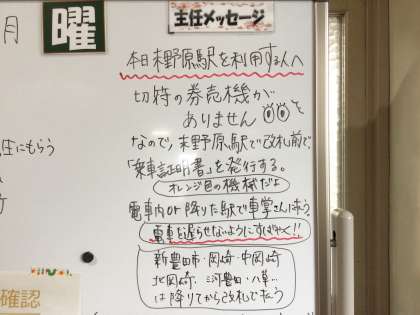 月
曜
主任メッセージ
本日末野原駅を利用する人へ
切符の券売機が
ありません
なので、末野原駅で改札前で、
「乗車証明書」を発行する。
オレンジ色の機械だよ
圧にもらう
電車内or降りた駅で車掌さんに払う。
電車を遅らせないようにすばやく!!
新豊田市・岡崎・中岡崎
北岡崎、三河豊田・八草...
は降りてから改札で払う
確認